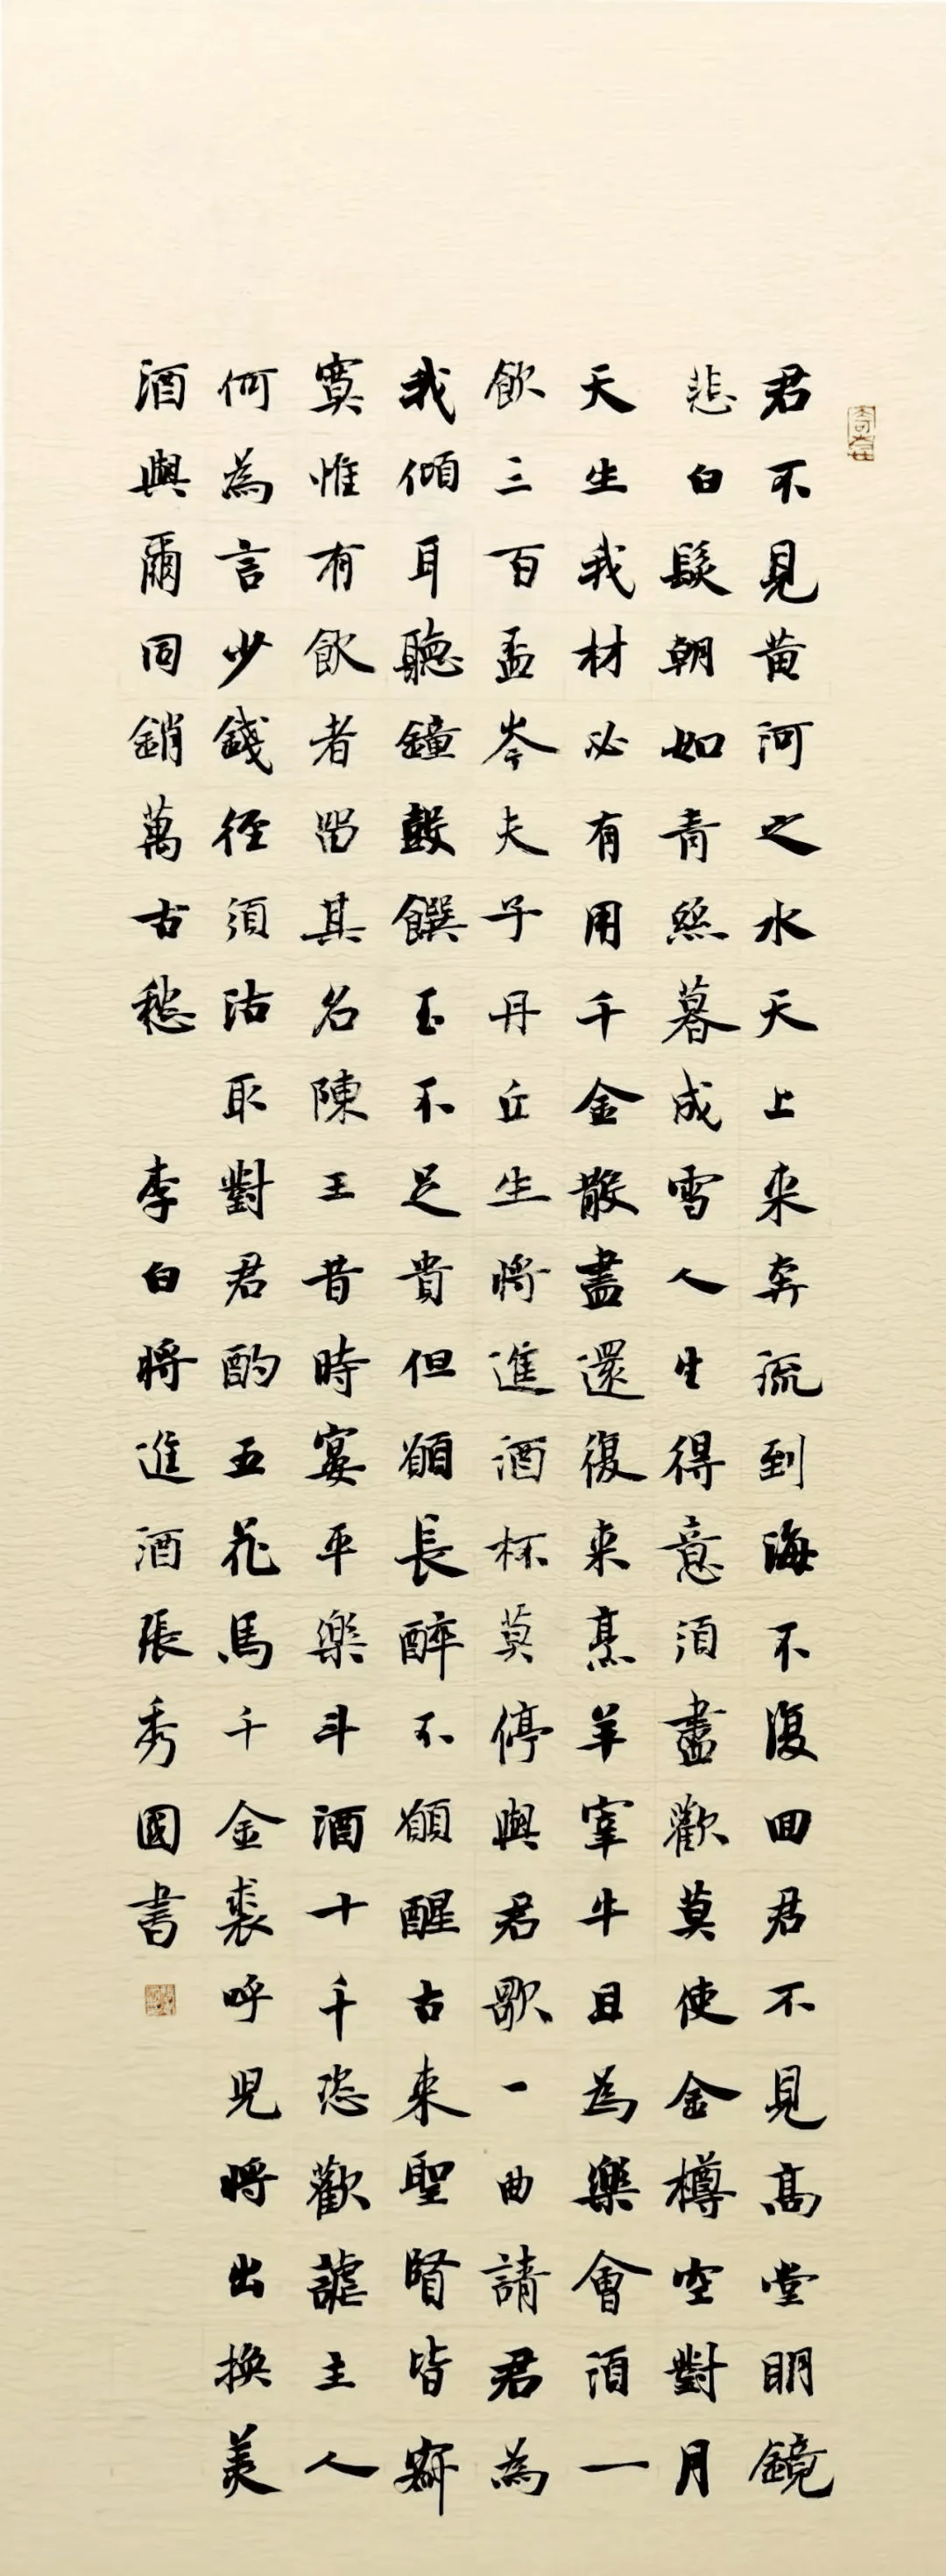 君不見黄河之水天上来奔流到海不復回君不見高堂明鏡
悲白髮朝如青絲暮成雪人生得意須盡歡莫使金樽空對月
天生我材必有用千金散盡還復来烹羊宰牛且為樂會須一
飲三百盃岑夫子丹丘生將進酒杯莫停與君歌一曲請君為
我傾耳聽鐘鼓饌玉不足貴但願長醉不願醒古来聖賢皆寂
寞惟有飲者留其名陳王昔時宴平樂斗酒十千恣歡謔主人
何為言少錢徑須沽取對君酌五花馬千金裘呼兒將出換美
酒與爾同銷萬古愁 李白將進酒張秀國書